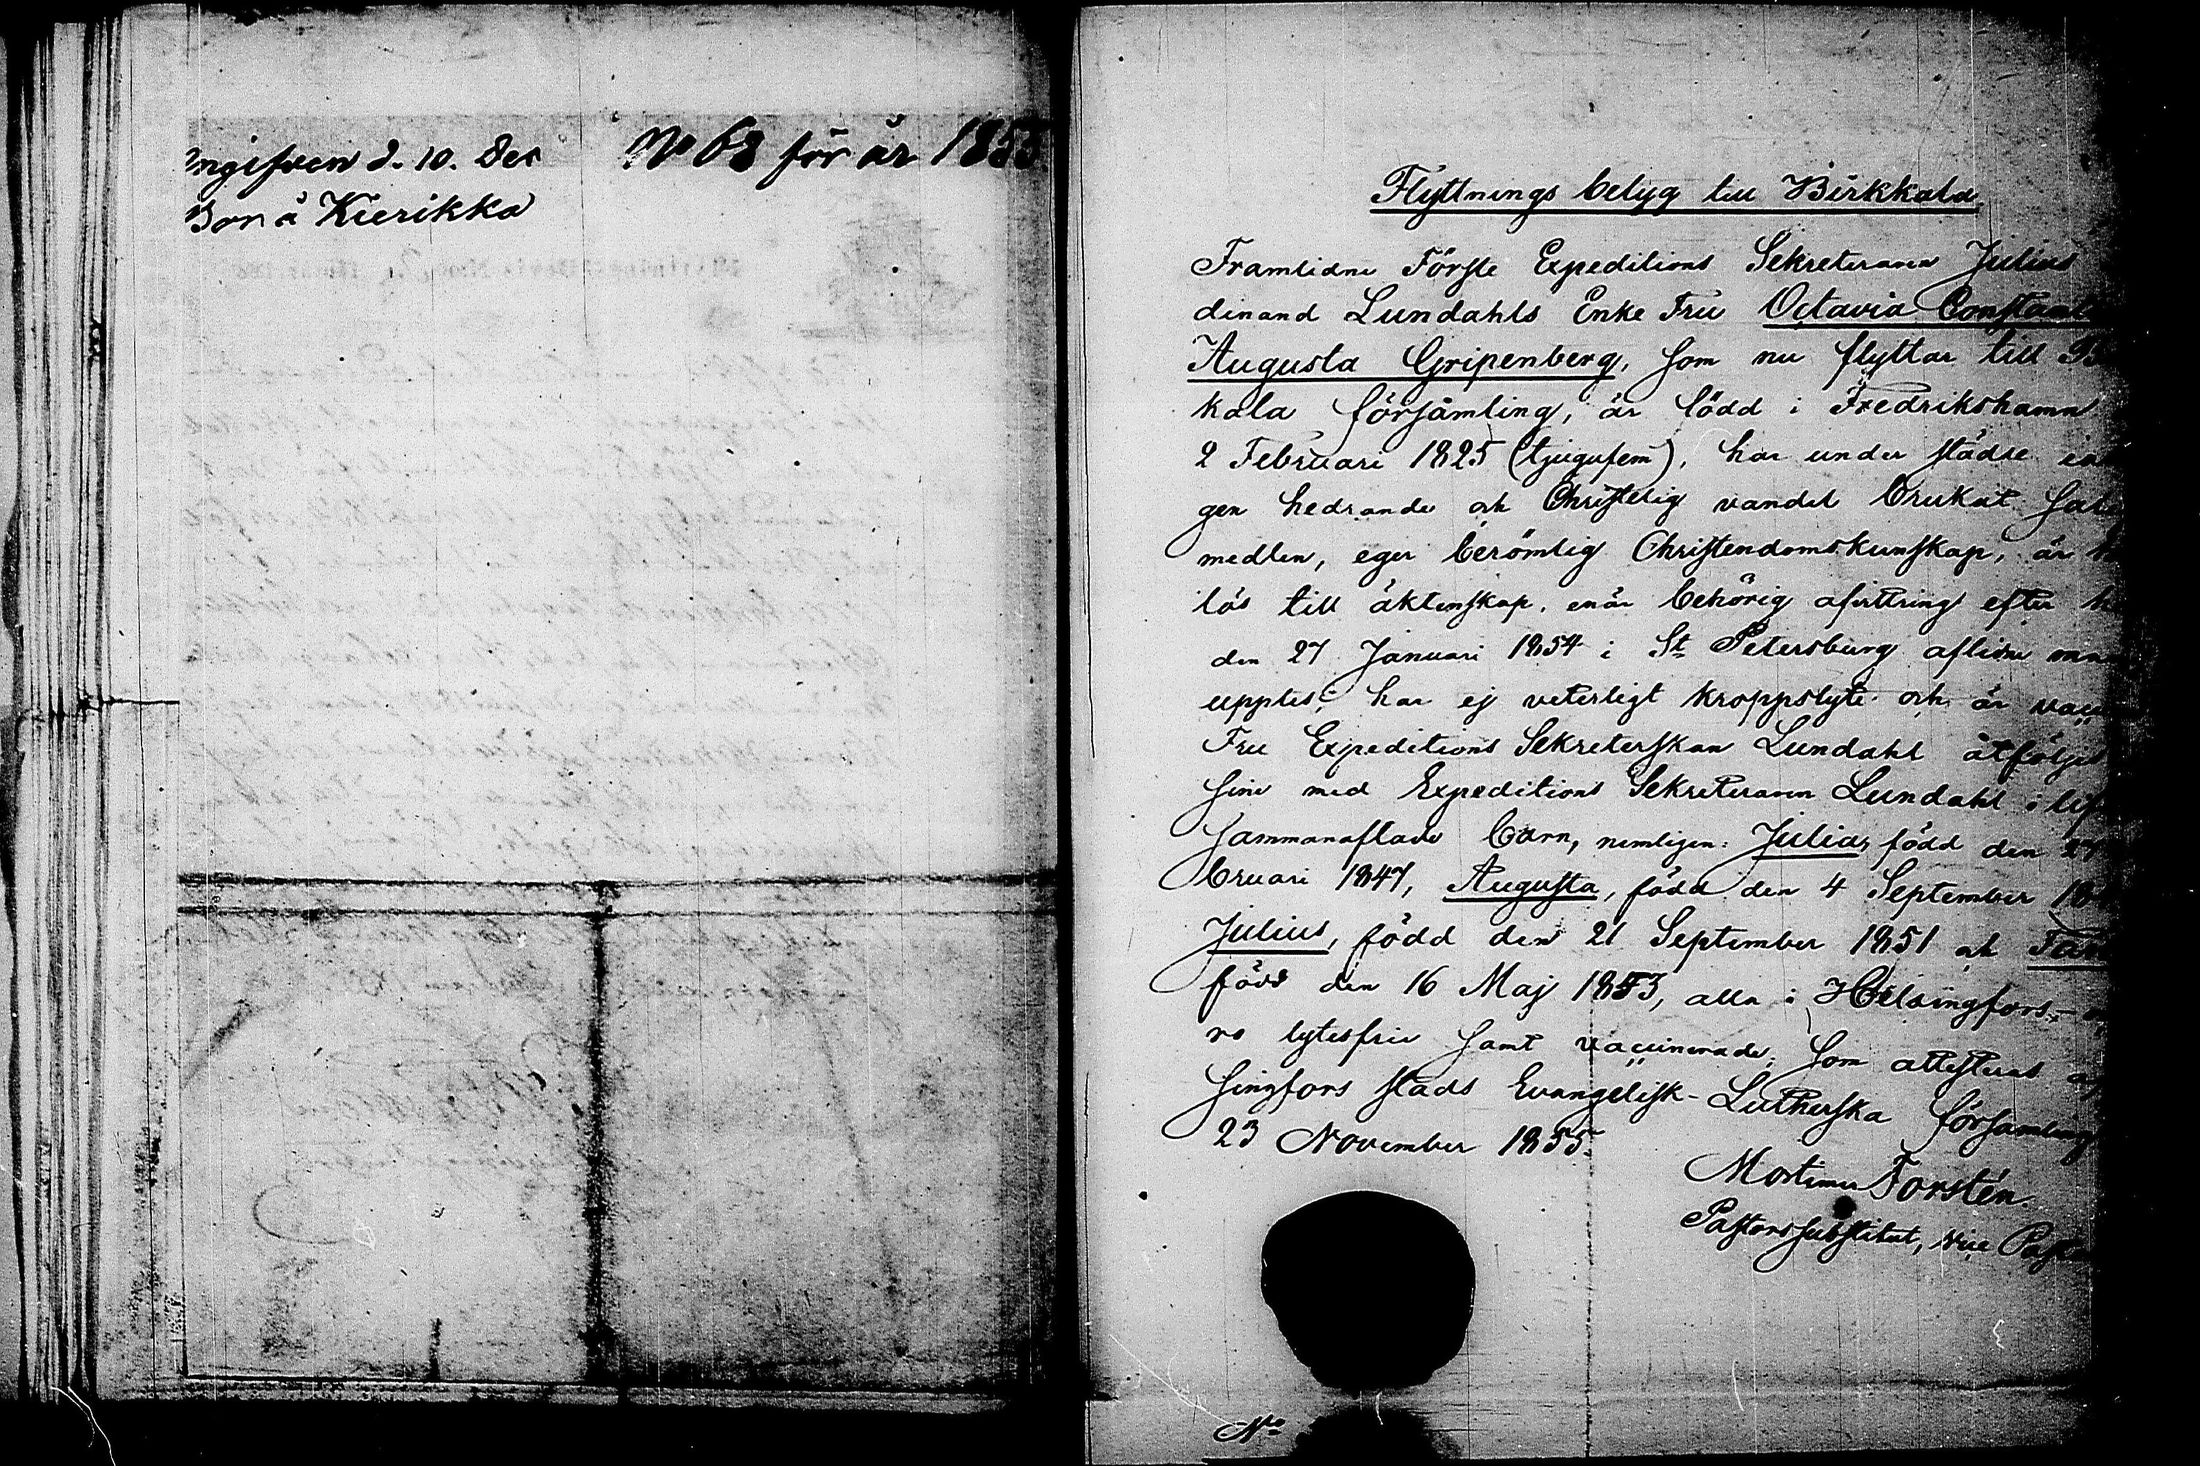 Ingifven d. 10. Dec
No 68 för år 1855
Bor å Kierikka
Flyttnings belyg till Birkkala
Framlidne Förste Expeditions Sekreteraren Julius
dinand Lundahls Enke Fru Octavia Constant
Augusta Gripenberg, som nu flyttar till Bi
kala församling, är född i Fredrikshamn
2 Februari 1825 (tjugufem), har under städse
gen hedrande och Christelig vandel brukat Sal
medlen, eger berömlig Christendomskunskap, är
lös till äktenskap, enär behörig afvittring efter h
den 27 Januari 1854 i St Petersburg aflidne man
upptes; har ej veterligt kroppslyte och är vacc
Fru Expeditions Sekreterskan Lundahl åtföljes
sine med Expeditions Sekreteraren Lundahl i
sammanaflade barn, nemligen: Julia, född den 27
bruari 1847, Augusta, född den 4 September 18
Julius, född den 21 September 1851 och
född den 16 Maj 1853, alla i Helsingfors
ro lytesfrie samt vaccinerade; Som attesteras af
singfors stads Evangelisk-Lutherska församling
23 November 1855.
Mortimer Forstén
Pastorssubstitut, vice Past
No